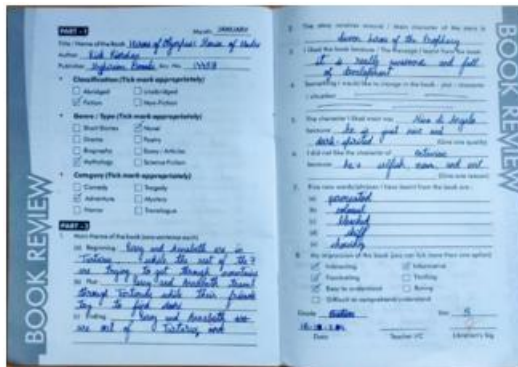 BOOK REVIEW
PART - 1
Month: JANUARY
Title / Name of the Book: Heroes of Olympus: House of Hades
Author: Rick Riordan
Publisher
Classification (Tick mark appropriately)
Abridged Unabridged
Fiction Non-Fiction
Genre / Type (Tick mark appropriately)
Short Stories Novel
Drama Poetry
Biography Essay / Articles
Mythology Science Fiction
Category (Tick mark appropriately)
Comedy Tragedy
Adventure Mystery
Horror Travelogue
PART - 2
1. Main theme of the book (one sentence each)
(a) Beginning Percy and Annabeth are in
while the rest of the 7
are trying to get through mountains
(b) Plot Percy and Annabeth travel
through while their friends
try to find doors
(c) Ending Percy and Annabeth
are out of and
BOOK REVIEW
2. The story revolves around / Main character of the story is
heroes of the Prophecy
3. I liked the book because / The message I learnt from the book
it is really awesome and full
of
4. Something I would like to change in the book - plot - character
/ situation:
5. The character I liked most was Nico di Angelo
because he is and
spirited (Give one quality)
6. I did not like the character of
because he's selfish, mean and
(Give one reason)
7. Five new words/phrases I have learnt from the book are:
(a)
(b) colossal
(c)
(d)
(e)
8. My impression of the book (you can tick more than one option)
Interesting Informative
Fascinating Thrilling
Easy to understand Boring
Difficult to comprehend/understand
Grade
Date Teacher I/C Librarian's Sig